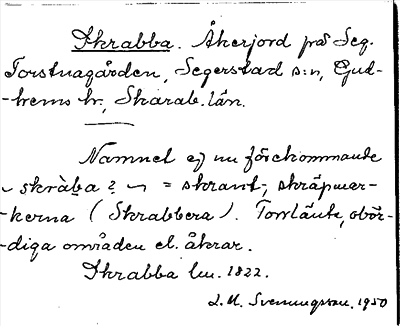 Skrabba. Åkerjord på Seg.
Torstnagården, Segerstad s:n, Gud-
-hems hr, Skarab. län.
Namnet ej nu förekommande
~ skràba ? ~ = skrant-, skräpmar-
-kerna (Skrabbera). Torrläute, obör-
-diga områden el. åkrar.
Skrabba lm. 1822.
L. M. Svenungsson. 1950